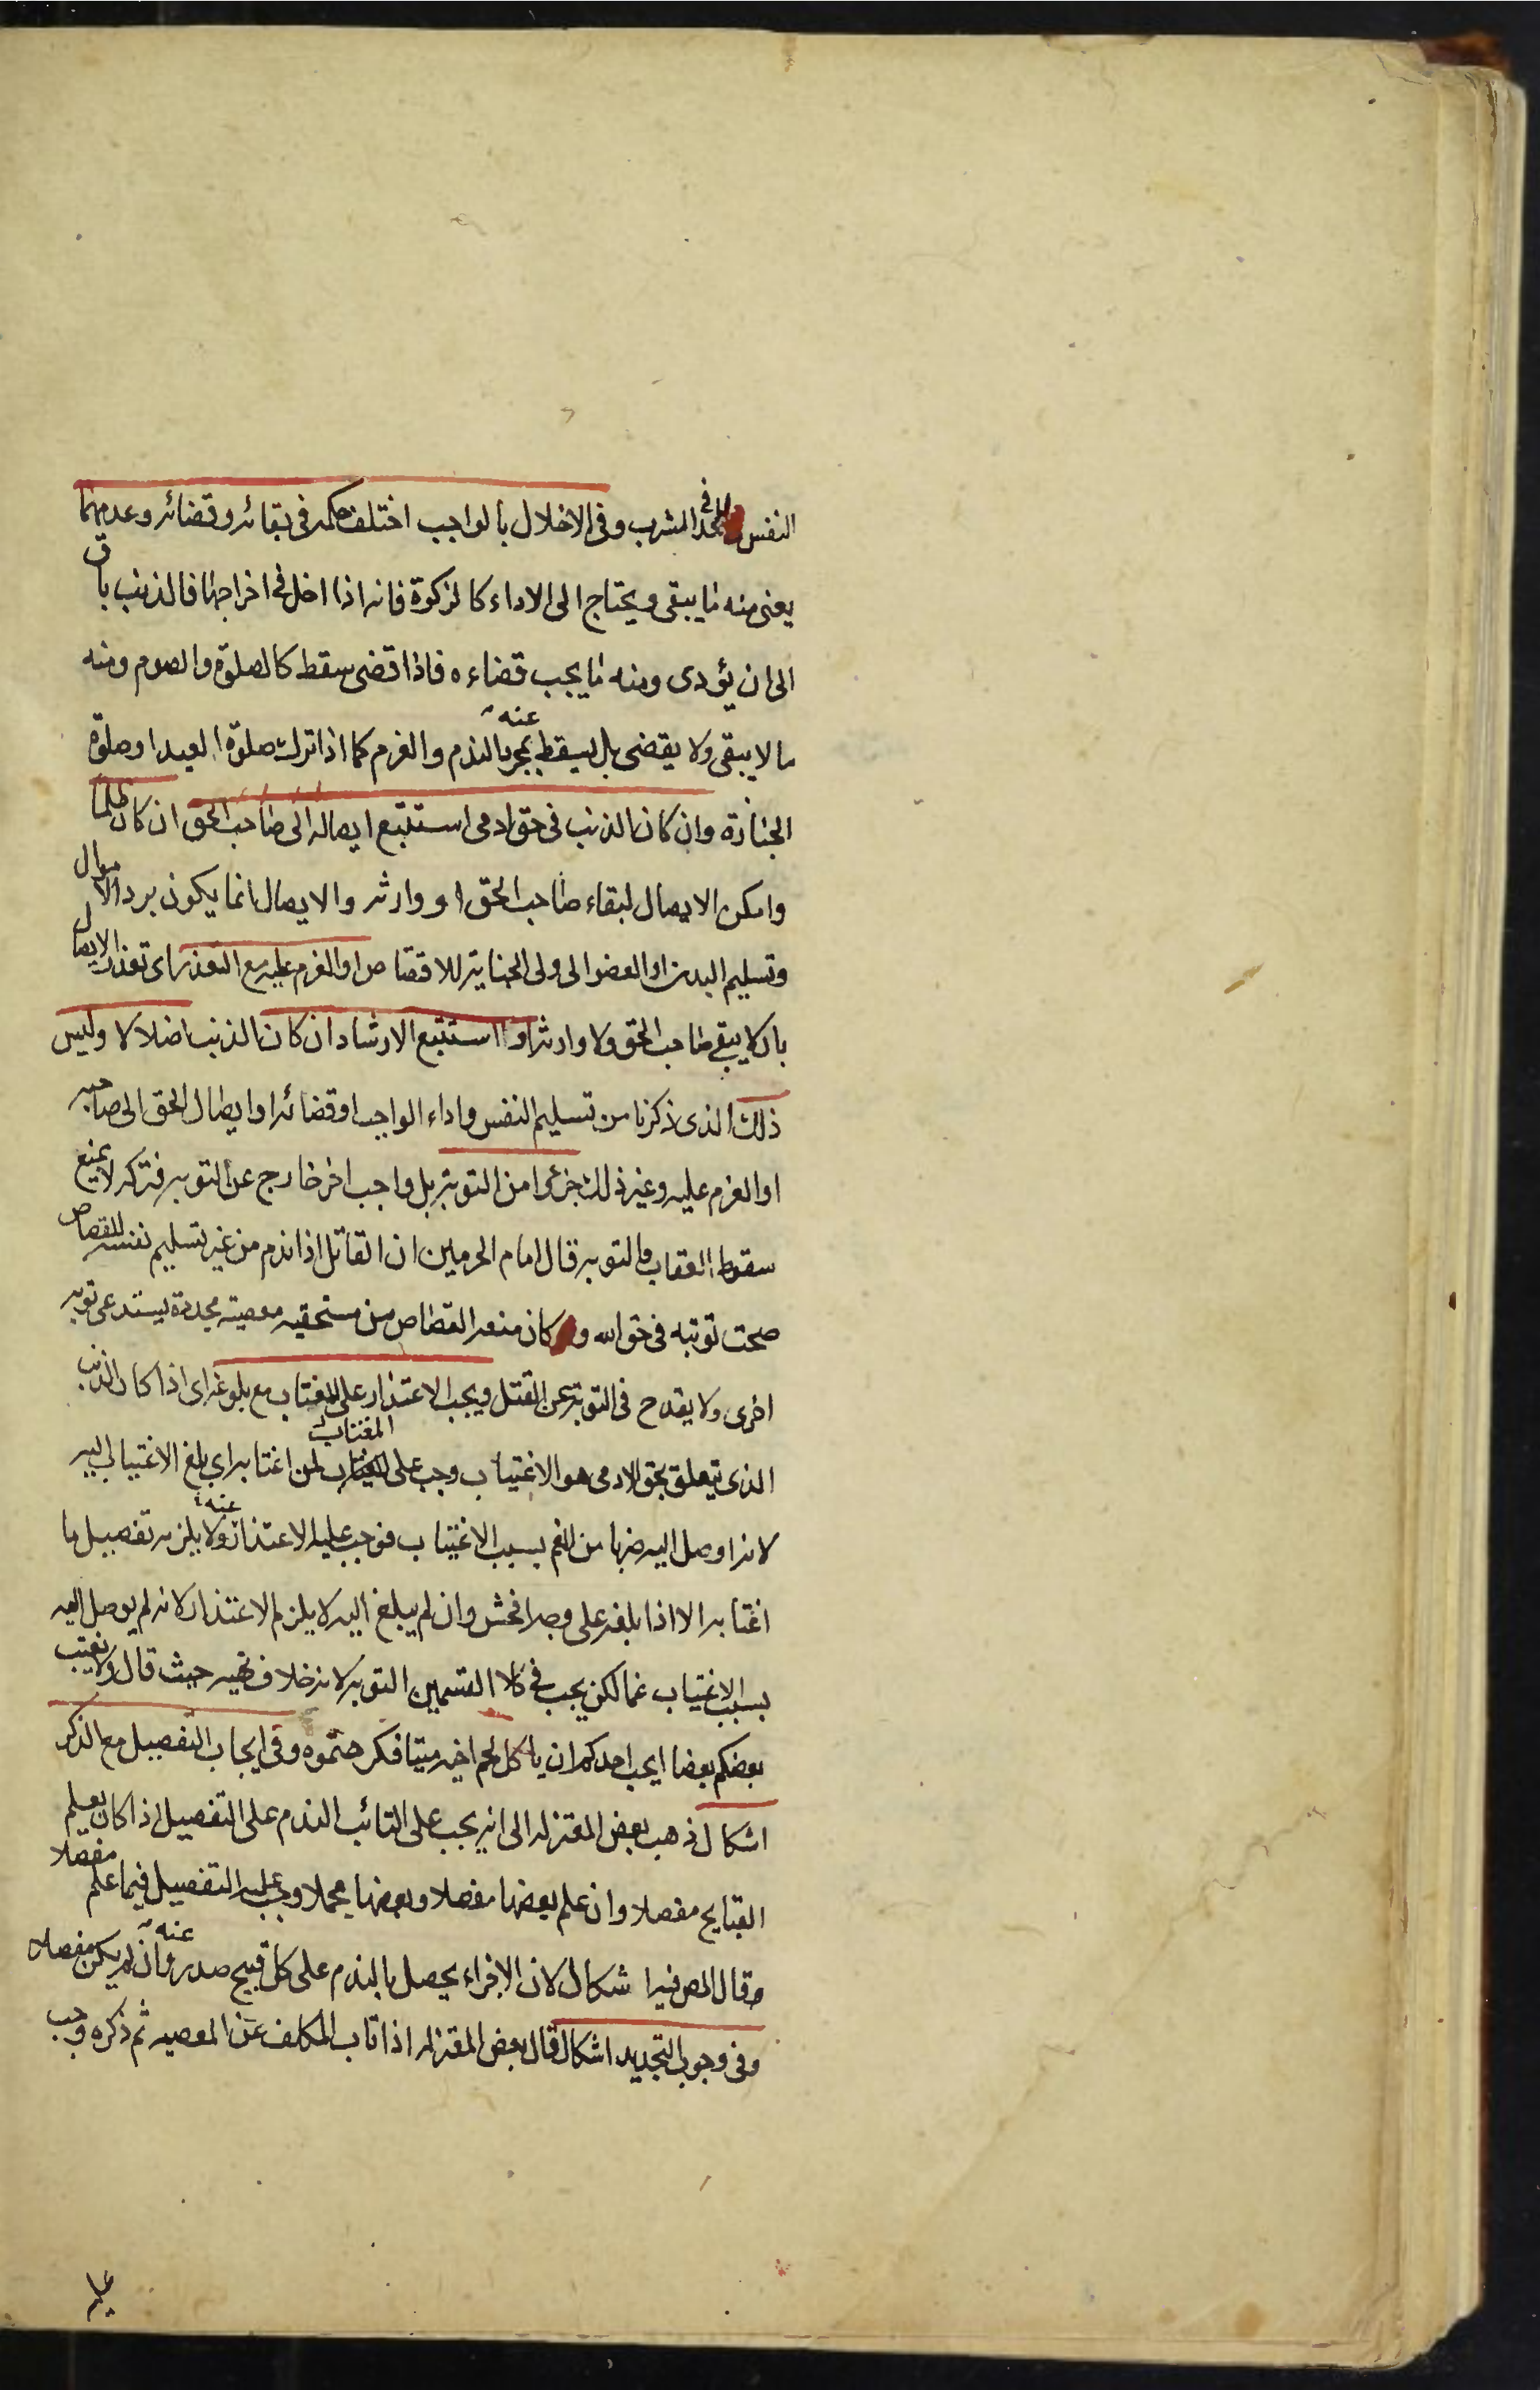 النفس للحد فى الشرب وفى الاخلال بالواجب اختلف حكمه فى بقائه وقضائه وعدمهما
يعنى منه ما يبقى ويحتاج الى الاداء كالزكوة فانه اذا اخل فى اخراجها فالذنب باق
الى ان يؤدى ومنه ما يجب قضاءه فاذا قضى سقط كالصلوة والصوم ومنه
ما لا يبقى ولا يقضى بل يسقط عنه بمجرد الندم والعزم كما اذا ترك صلوة العيد او صلوة
الجنازة وان كان الذنب فى حق ادمى استتبع ايصاله الى صاحب الحق ان كان ظلما
وامكن الايصال لبقاء صاحب الحق او وارثه والايصال انما يكون برد الاموال
وتسليم البدن او العضو الى ولى الجناية للاقتصاص او العزم عليه مع التعذر اى تعذر الايصال
بان لا يبقى صاحب الحق ولا وارثه او استتبع الارشاد ان كان الذنب اضلالا وليس
ذلك الذى ذكرنا من تسليم النفس واداء الواجب او قضائه او ايصال الحق الى صاحبه
او العزم عليه وغير ذلك جزءا من التوبة بل واجب اخر خارج عن التوبه فتركه لا يمنع
سقوط العقاب بالتوبه قال امام الحرمين ان القاتل اذا ندم من غير تسليم نفسه للقصاص
صحت توبته فى حق الله و كان منعه القصاص من مستحقيه معصيته مجددة يستدعى توبه
اخرى ولا يقدح فى التوبة عن القتل ويجب الاعتذار على المغتاب مع بلوغه اى اذا كان الذنب
الذى يتعلق بحق الادمى هو الاغتياب وجب على المغتاب لمن اغتابه اى بلغ الاغتياب اليه
لانه اوصل اليه ضربا من الغم بسبب الاغتياب فوجب عليه الاعتذار عنه ولا يلزمه تفصيل ما
اغتابه الا اذا بلغه على وجه افحش وان لم يبلغ اليه لا يلزم الاعتذار لانه لم يوصل اليه
بسبب الاغتياب غما لكن يجب فى كلا القسمين التوبه لانه خلاف نهيه حيث قال ولا يغتب
بعضكم بعضا ايحب احدكم ان ياكل لحم اخيه ميتا فكرهتموه وفى ايجاب التفصيل مع الذكر
اشكال ذهب بعض المعتزله الى انه يجب على التائب الندم على التفصيل اذا كان يعلم
القبايح مفصلا وان علم بعضها مفصلا وبعضها مجملا وجب عليه التفصيل فيما علم مفصلا
وقال المص فيه اشكال لان الاجزاء يحصل بالندم على كل قبيح صدر عنه وان لم يكن مفصلا
وفى وجوب التجديد اشكال قال بعض المعتزله اذا تاب المكلف عن المعصيه ثم ذكره وجب
عليه